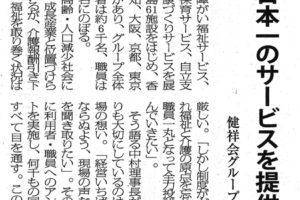 日本一のサービスを提供
健祥会グループ
障がい福祉サービス、
保育サービス、自立支
サービスを展
島61施設をはじめ、香
知、大阪、京都、東京
があり、グループ全体
者は約6千名、職員は
名にのぼる。
高齢・人口減少社会に
成長産業と位置づけら
るが、介護報酬引き下
福祉を取り巻く状況は
厳しい。「しかし制度が
れ福祉と介護の原点を忘
職員一丸となって全力を
んでいきたい」
そう語る中村理事長が
りも大切にしているのは
場の想い。「経営いちば
ならぬよう、現場の声
を聞き取りたい」。その
に利用者・職員へのアン
トを実施し、何千もの
すべて目を通す。この